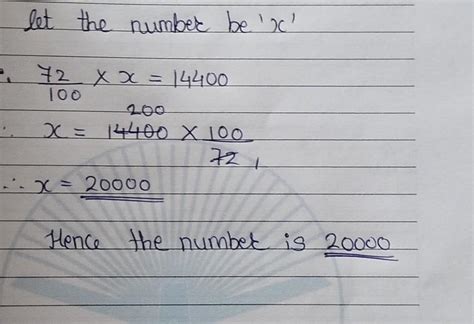 let the number be 'x'
∴ 72/100 × x = 14400
200
∴ x = 14400 × 100/72 1
∴ x = 20000
Hence the number is 20000